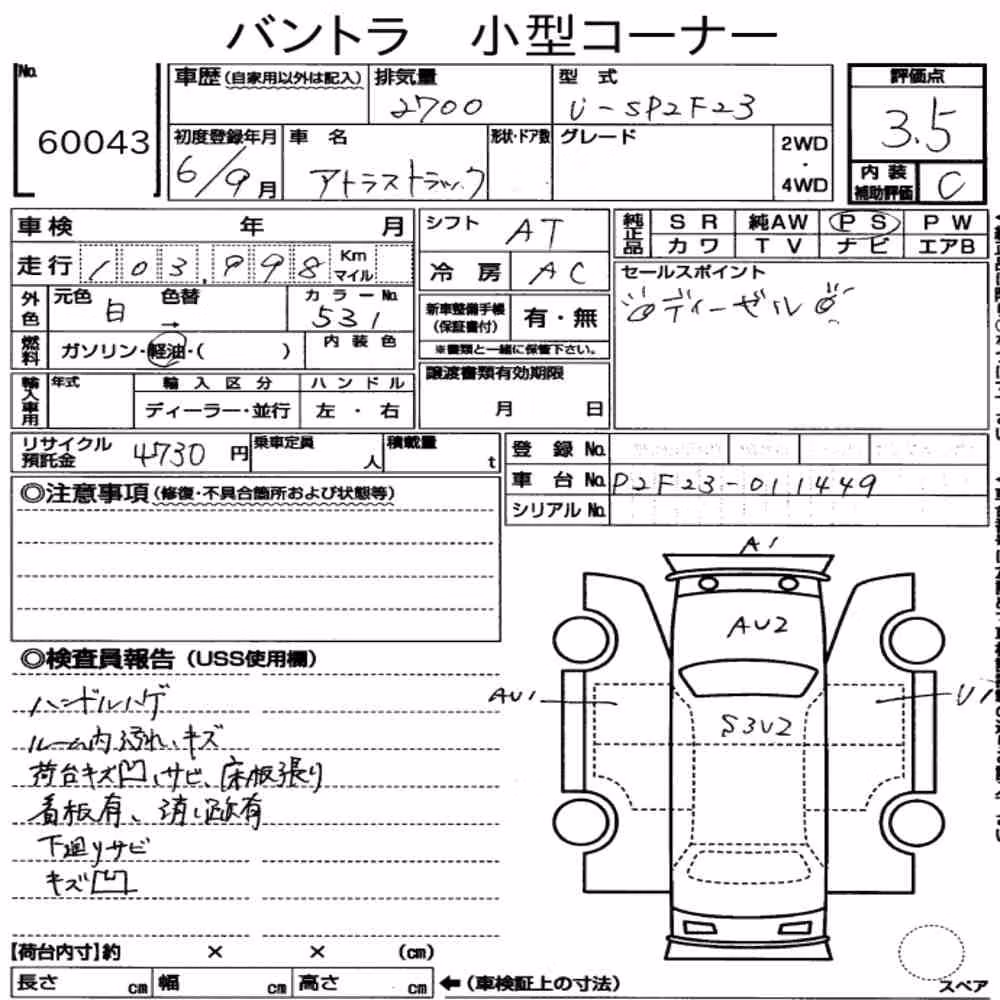 バントラ 小型コーナー
No. 60043
車歴 (自家用以外は記入)
排気量 2700
型式 U-SP2F23
評価点 3.5
初度登録年月 6/9月
車名 アトラストラック
形状・ドア数
グレード
2WD・4WD
内装補助評価 C
車検 年 月
シフト AT
純正品 SR 純AW PS PW
カワ TV ナビ エアB
走行 103,998 Km マイル
冷房 AC
セールスポイント
ディーゼル
外色 元色 白 色替 → カラーNo. 531
新車整備手帳(保証書付) 有・無
※書類と一緒に保管下さい。
燃料 ガソリン・軽油・( )
内装色
輸入車用 年式 輸入区分 ハンドル
ディーラー・並行 左・右
譲渡書類有効期限
月 日
リサイクル預託金 4730円
乗車定員 人
積載量 t
登録No.
車台No. P2F23-011449
シリアルNo.
◎注意事項 (修復・不具合箇所および状態等)
◎検査員報告 (USS使用欄)
ハンドルハゲ
ルーム内汚れ、キズ
荷台キズ凹、サビ、床板張り
看板有、消し跡有
下廻りサビ
キズ凹
A1
AU2
AU1
U1
S3U2
【荷台内寸】約 × × (cm)
長さ cm 幅 cm 高さ cm ←(車検証上の寸法)
スペア